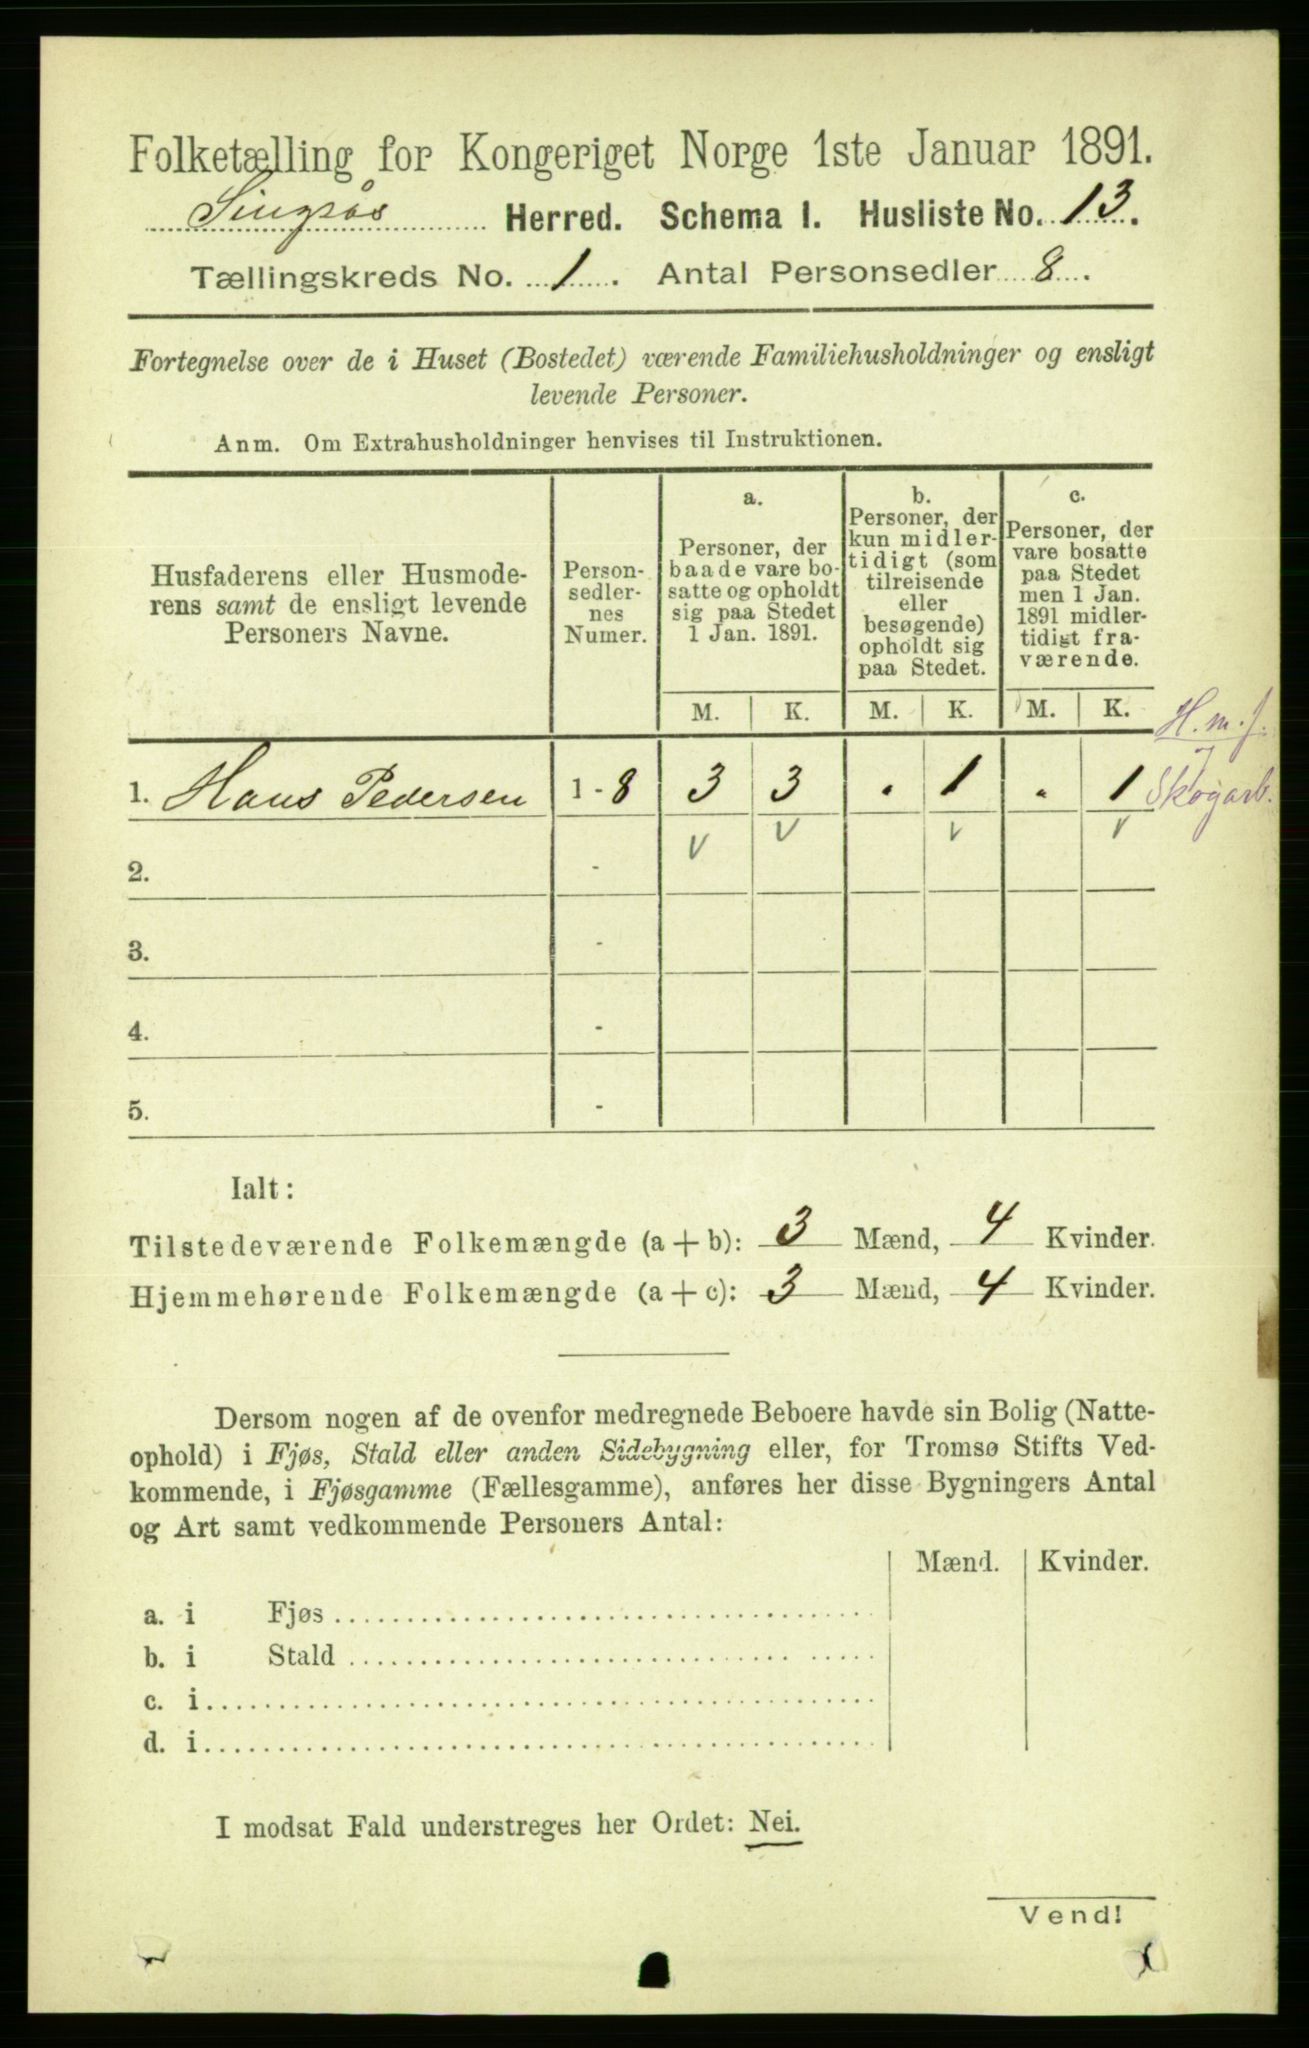 Folketælling for Kongeriget Norge 1ste Januar 1891.
Singsås Herred. Schema I. Husliste No. 13.
Tællingskreds No. 1. Antal Personsedler 8.
Fortegnelse over de i Huset (Bostedet) værende Familiehusholdninger og ensligt
levende Personer.
Anm. Om Extrahusholdninger henvises til Instruktionen.
Husfaderens eller Husmode-
rens samt de ensligt levende
Personers Navne.
Person-
sedler-
nes
Numer.
a.
Personer, der
baade vare bo-
satte og opholdt
sig paa Stedet
1 Jan. 1891.
b.
Personer, der
kun midler-
tidigt (som
tilreisende
eller
besøgende)
opholdt sig
paa Stedet.
c.
Personer, der
vare bosatte
paa Stedet
men 1 Jan.
1891 midler-
tidigt fra-
værende.
M. K. M. K. M. K.
H. m. j.
1. Hans Pedersen 1 - 8 3 3 . 1 . 1
Skogarb.
2. -
3. -
4. -
5. -
Ialt:
Tilstedeværende Folkemængde (a + b): 3 Mænd, 4 Kvinder.
Hjemmehørende Folkemængde (a + c): 3 Mænd, 4 Kvinder.
Dersom nogen af de ovenfor medregnede Beboere havde sin Bolig (Natte-
ophold) i Fjøs, Stald eller anden Sidebygning eller, for Tromsø Stifts Ved-
kommende, i Fjøsgamme (Fællesgamme), anføres her disse Bygningers Antal
og Art samt vedkommende Personers Antal:
Mænd. Kvinder.
a. i Fjøs
b. i Stald
c. i
d. i
I modsat Fald understreges her Ordet: Nei.
Vend!